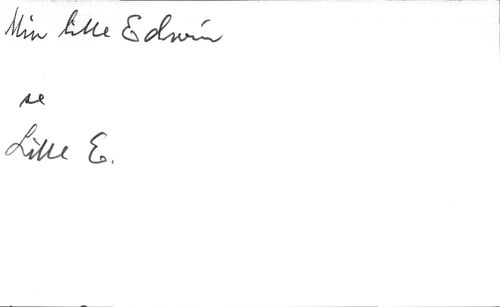 Min lille Edwin
se
Lille E.